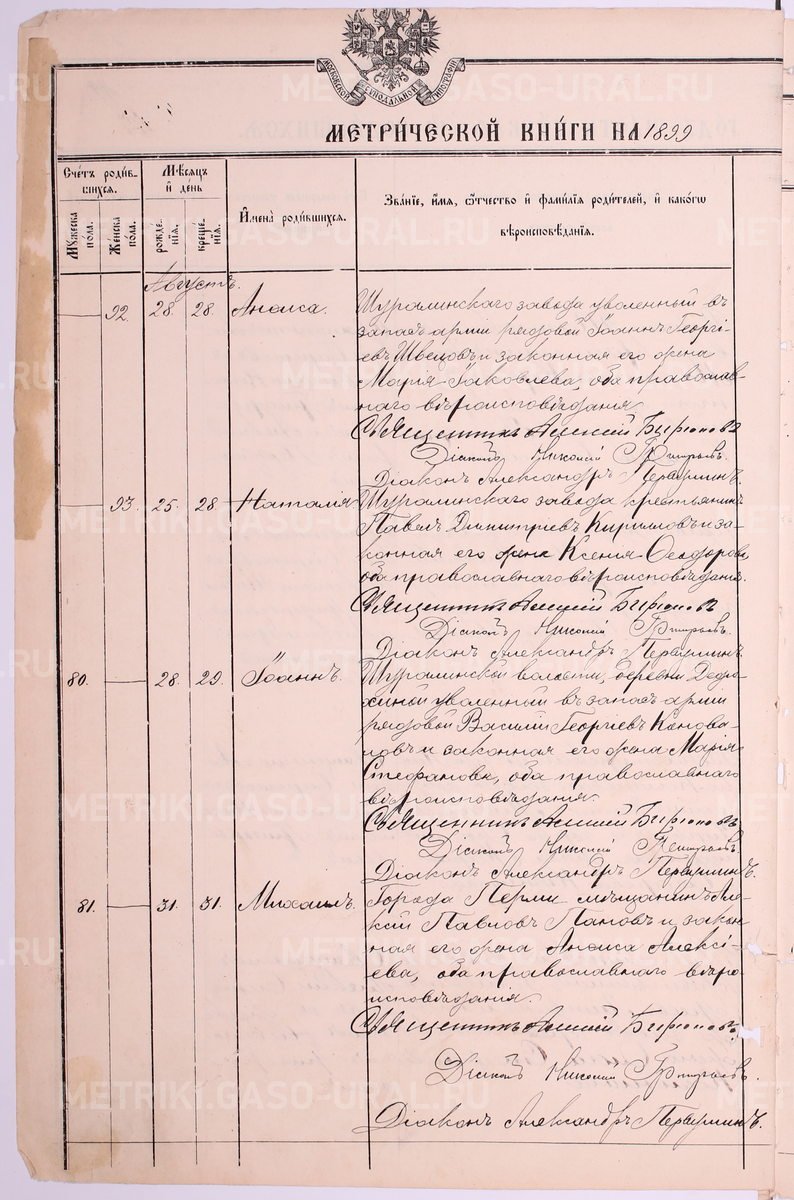 МОСКОВСКОЙ СѴНОДАЛЬНОЙ ТИПОГРАФІИ
МЕТРИ́ЧЕСКОЙ КНИ́ГИ НА 1899
Счетъ роди́вшихся.
Мꙋжеска пола.
Женска пола.
Мѣсяцъ и҆ де́нь
рожденїѧ.
крещенїѧ.
И҆мена̀ роди́вшихся.
Зва́нїе, и҆́мѧ, ѻ҆́тчество и҆ фами́лїѧ роди́телей, и҆ како́гѡ
вѣроисповѣ́данїѧ.
Августъ.
92. 28. 28. Аноиса. Шуралинскаго завода уволенный въ
запасъ арміи рядовой Іоаннъ Георгі-
евъ Швецовъ и законная его жена
Марія Іаковлева, оба православ-
наго вѣроисповѣданія.
Священникъ Алексій Бирюковъ
Діаконъ Николай
Діаконъ Александръ Первушинъ.
93. 25. 28 Наталія Шуралинскаго завода крестьянинъ
Павелъ Димитріевъ Кирилловъ и за-
конная его жена Ксенія Ѳеодорова
оба православнаго вѣроисповѣданія.
Священникъ Алексій Бирюковъ
Діаконъ Николай
Діаконъ Александръ Первушинъ
80. 28. 29. Іоаннъ. Шуралинской волости, деревни
уволенный въ запасъ арміи
рядовой Василій Георгіевъ Конова-
ловъ и законная его жена Марія
Стефановa, оба православнаго
вѣроисповѣданія.
Священникъ Алексій Бирюковъ
Діаконъ Николай
Діаконъ Александръ Первушинъ.
81. 31. 31. Михаилъ. Города Перми мѣщанинъ Але-
ксій Павловъ Пановъ и закон-
ная его жена Аноиса Алексі-
ева, оба православнаго вѣро-
исповѣданія.
Священникъ Алексій Бирюковъ
Діаконъ Николай
Діаконъ Александръ Первушинъ.
METRIKI.GASO-URAL.RU